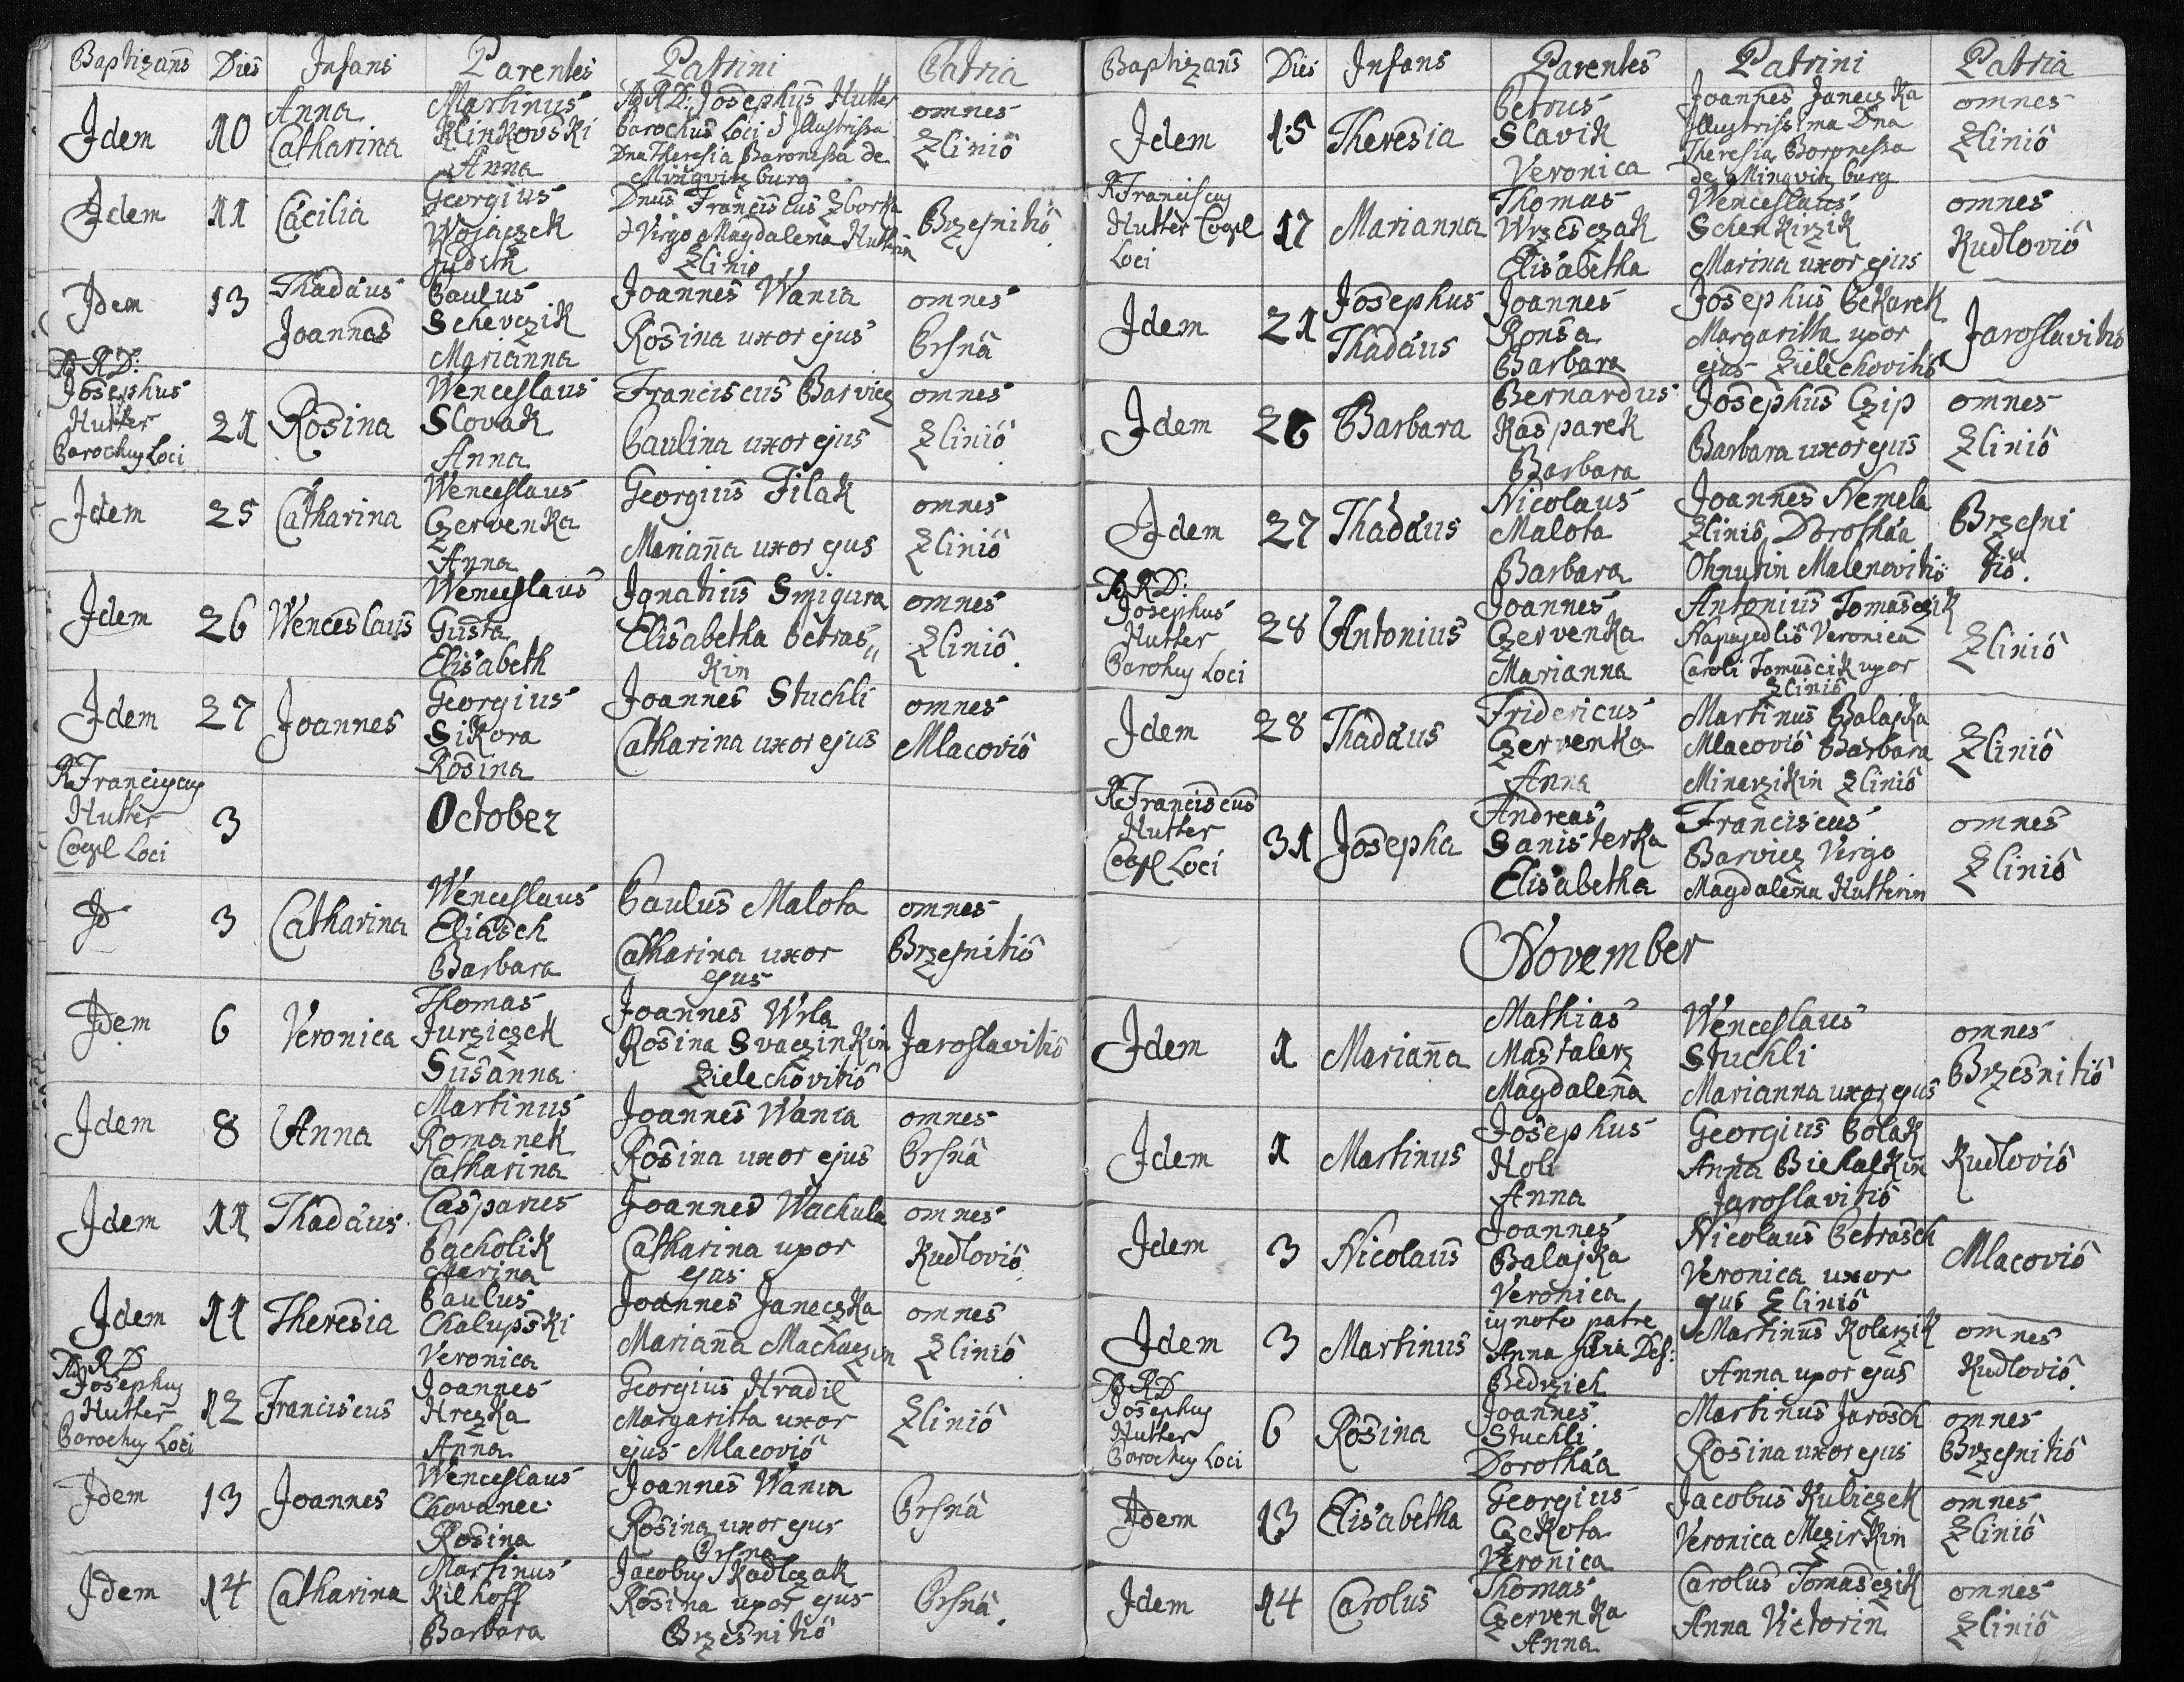 Baptizans Dies Infans Parentes Patrini Patria
Idem 10 Anna Catharina
Martinus
Klinkovski
Anna
A R D: Josephus Hutter
Parochus Loci & Illustrissa
Dna Theresia Baronissa de
Minqvitzburg
omnes
Zlinio
Idem 11 Cäcilia
Georgius
Wojaczek
Judith
Dnus Franciscus Zborka
& Virgo Magdalena Hutterin
Zlinio
Brzesnitio
Idem 13 Thadäus
Joannes
Paulus
Schevczik
Marianna
Joannes Wania
Rosina uxor ejus
omnes
Prsnâ
A R D:
Josephus
Hutter
Parochus Loci
21 Rosina
Wenceslaus
Slovak
Anna
Franciscus Barvicz
Paulina uxor ejus
omnes
Zlinio
Idem 25 Catharina
Wenceslaus
Czervenka
Anna
Georgius Filak
Mariana uxor ejus
omnes
Zlinio
Idem 26 Wenceslaus
Wenceslaus
Gusta
Elisabeth
Ignatius Smigura
Elisabetha Petras„
kin
omnes
Zlinio.
Idem 27 Joannes
Georgius
Sikora
Rosina
Joannes Stuchli
Catharina uxor ejus
omnes
Mlacovio
R Franciscus
Hutter
Coopl Loci
3
October
Id 3 Catharina
Wenceslaus
Eliasch
Barbara
Paulus Malota
Catharina uxor
ejus
omnes
Brzesnitio
Idem 6 Veronica
Thomas
Jurziczek
Susanna
Joannes Wrla
Rosina Svaczinkin
Zielechovitio
Jaroslavitio
Idem 8 Anna
Martinus
Romanek
Catharina
Joannes Wania
Rosina uxor ejus
omnes
Prsnâ
Idem 11 Thadäus
Casparus
Pacholik
Marina
Joannes Wachula
Catharina uxor
ejus
omnes
Kudlovio
Idem 11 Theresia
Paulus
Chalupski
Veronica
Joannes Janeczka
Mariana Machaczin
omnes
Zlinio
A R D
Josephus
Hutter
Parochus Loci
12 Franciscus
Joannes
Hrczka
Anna
Georgius Hradil
Margaritta uxor
ejus Mlacovio
Zlinio
Idem 13 Joannes
Wenceslaus
Chovanec
Rosina
Joannes Wania
Rosina uxor ejus
Prsna
Prsnâ
Idem 14 Catharina
Martinus
Kilhoff
Barbara
Jacobus Kadlczak
Rosina uxor ejus
Brzesnitio
Prsnâ.
Baptizans Dies Infans Parentes Patrini Patria
Idem 15 Theresia
Petrus
Slavik
Veronica
Joannes Janeczka
Illustrissima Dna
Theresia Baronessa
de Minqvitzburg
omnes
Zlinio
R Franciscus
Hutter Coopl
Loci
17 Marianna
Thomas
Wrzesczak
Elisabetha
Wenceslaus
Schenkirzik
Marina uxor ejus
omnes
Kudlovio
Idem 21 Josephus
Thadäus
Joannes
Ronsa
Barbara
Josephus Pekarek
Margaritta uxor
ejus Zielechovitio
Jaroslavitio
Idem 26 Barbara
Bernardus
Kasparek
Barbara
Josephus Czip
Barbara uxor ejus
omnes
Zlinio
Idem 27 Thadäus
Nicolaus
Malota
Barbara
Joannes Nemela
Zlinio, Dorothäa
Ohnutin Malenovitio
Brzesni
tio.
A R D:
Josephus
Hutter
Parohus Loci
28 Antonius
Joannes
Czervenka
Marianna
Antonius Tomasczik
Napajedlio Veronica
Caroli Tomascik uxor
Zlinio
Zlinio
Idem 28 Thadäus
Fridericus
Czervenka
Anna
Martinus Balajka
Mlacovio Barbara
Minarzikin Zlinio
Zlinio
R Franciscus
Hutter
Coopl Loci
31 Josepha
Andreas
Sanisterka
Elisabetha
Franciscus
Barvicz Virgo
Magdalena Hutterin
omnes
Zlinio
November
Idem 1 Mariana
Mathias
Mastalerz
Magdalena
Wenceslaus
Stuchli
Marianna uxor ejus
omnes
Brzesnitio
Idem 1 Martinus
Josephus
Holi
Anna
Georgius Polak
Anna Biehalkin
Jaroslavitio
Kudlovio
Idem 3 Nicolaus
Joannes
Balajka
Veronica
Nicolaus Petrasch
Veronica uxor
ejus Zlinio
Mlacovio
Idem 3 Martinus
ignoto patre
Anna filia Def:
Bedrzich
Martinus Kolarzik
Anna uxor ejus
omnes
Kudlovio.
A R D
Josephus
Hutter
Parochus Loci
6 Rosina
Joannes
Stuchli
Dorothäa
Martinus Jarosch
Rosina uxor ejus
omnes
Brzesnitio
Idem 13 Elisabetha
Georgius
Czekota
Veronica
Jacobus Kubiczek
Veronica Mezirkin
omnes
Zlinio
Idem 14 Carolus
Thomas
Czervenka
Anna
Carolus Tomasczik
Anna Victorin
omnes
Zlinio